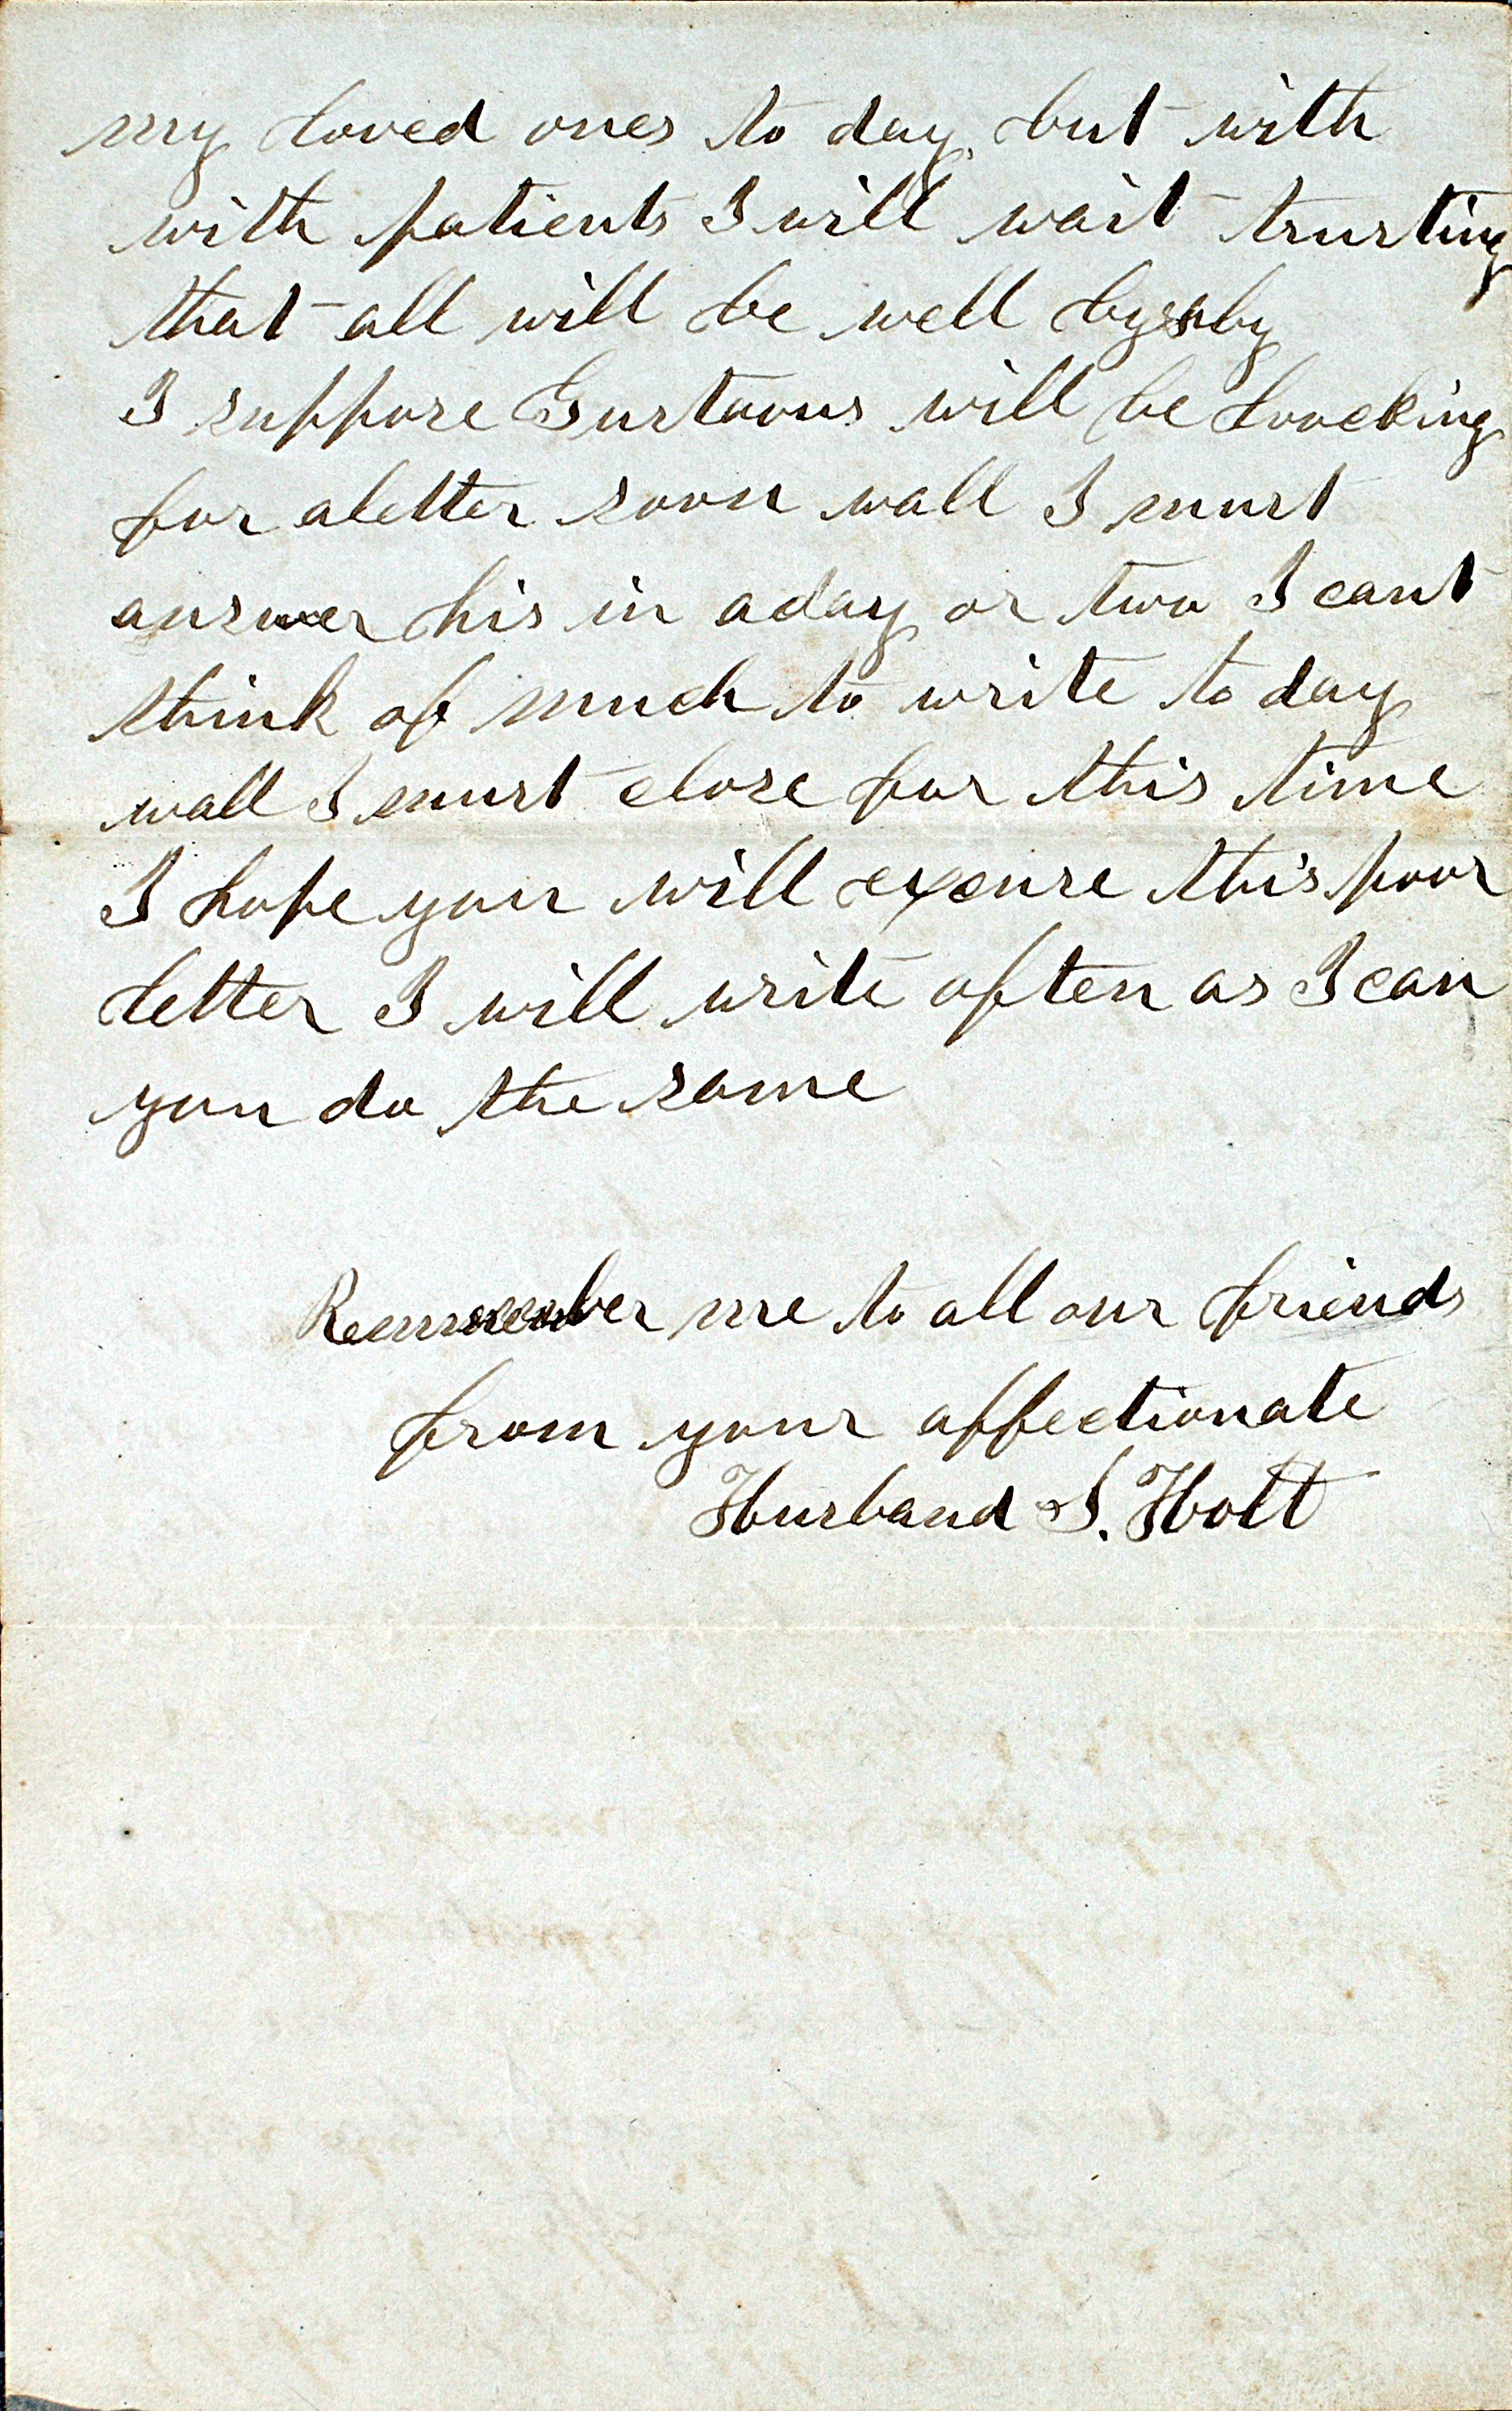 my loved ones to day, but with
with patients I will wait trusting
that all will be well by&by
I suppose Gustavus will be loocking
for aletter soon wall I must
answer his in aday or two I cant
think of much to write to day
wall I must close for this time
I hope you will excuse this poor
letter I will write often as I can
you do the same
Remember me to all our friends
from your affectionate
Husband S. Holt